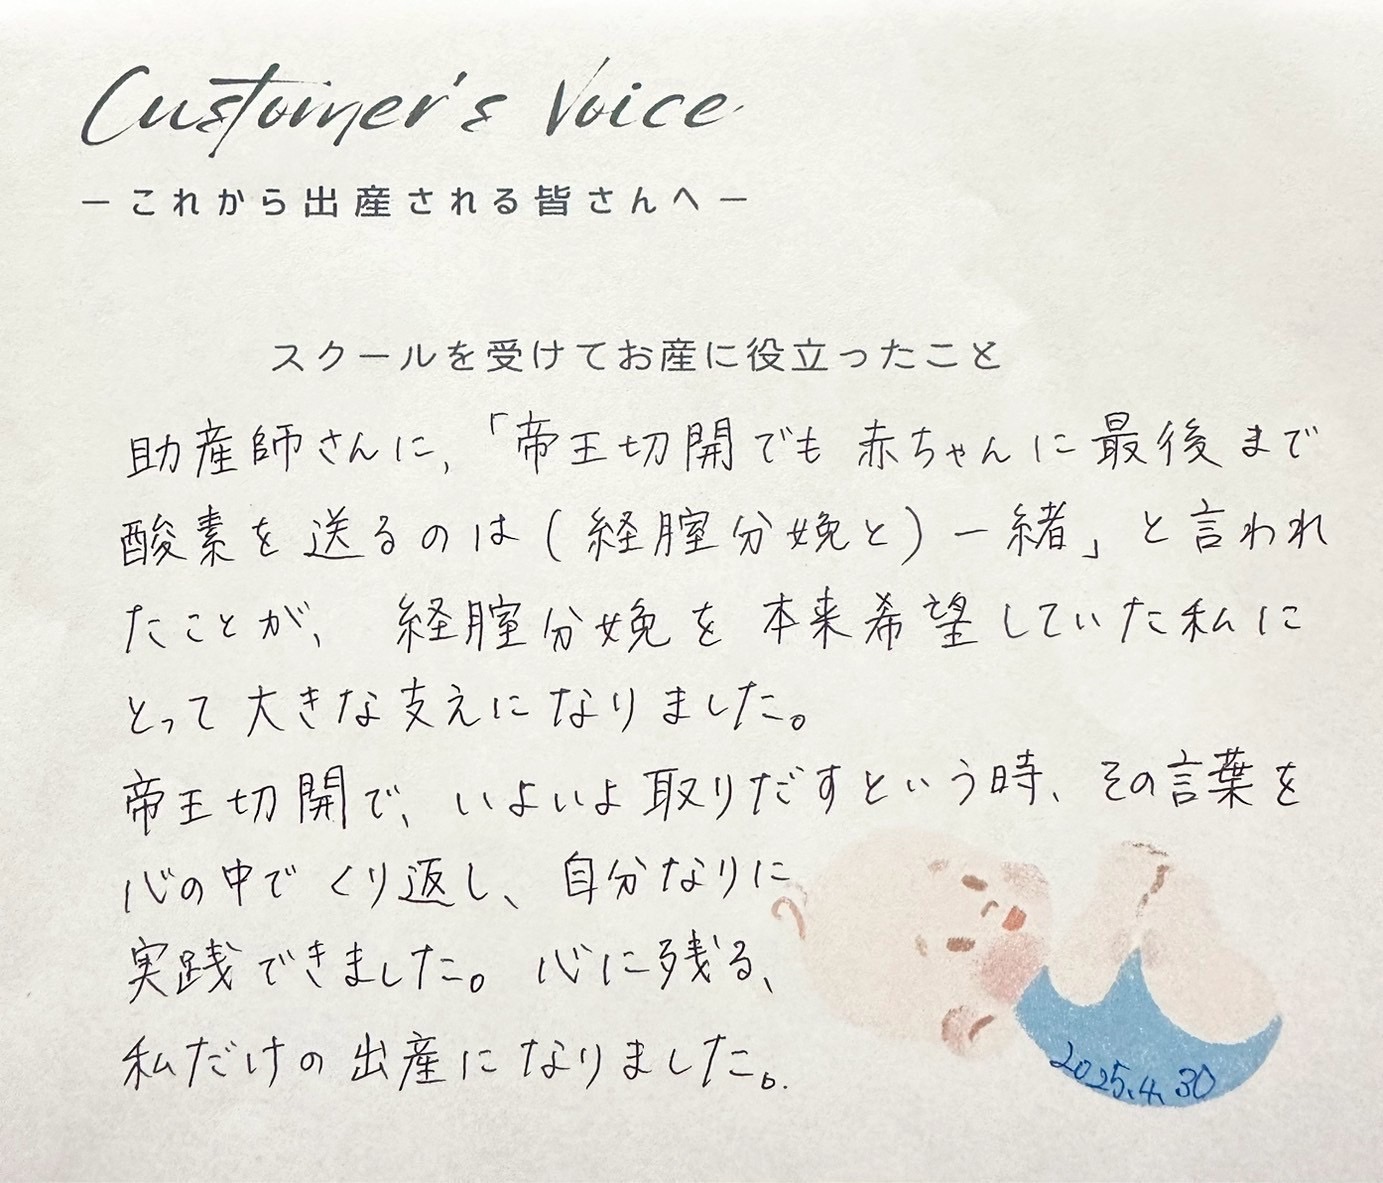 Customer's Voice
－これから出産される皆さんへ－
スクールを受けてお産に役立ったこと
助産師さんに、「帝王切開でも赤ちゃんに最後まで
酸素を送るのは(経腟分娩と)一緒」と言われ
たことが、経腟分娩を本来希望していた私に
とって大きな支えになりました。
帝王切開で、いよいよ取りだすという時、その言葉を
心の中でくり返し、自分なりに
実践できました。心に残る、
私だけの出産になりました。
2025.4.30